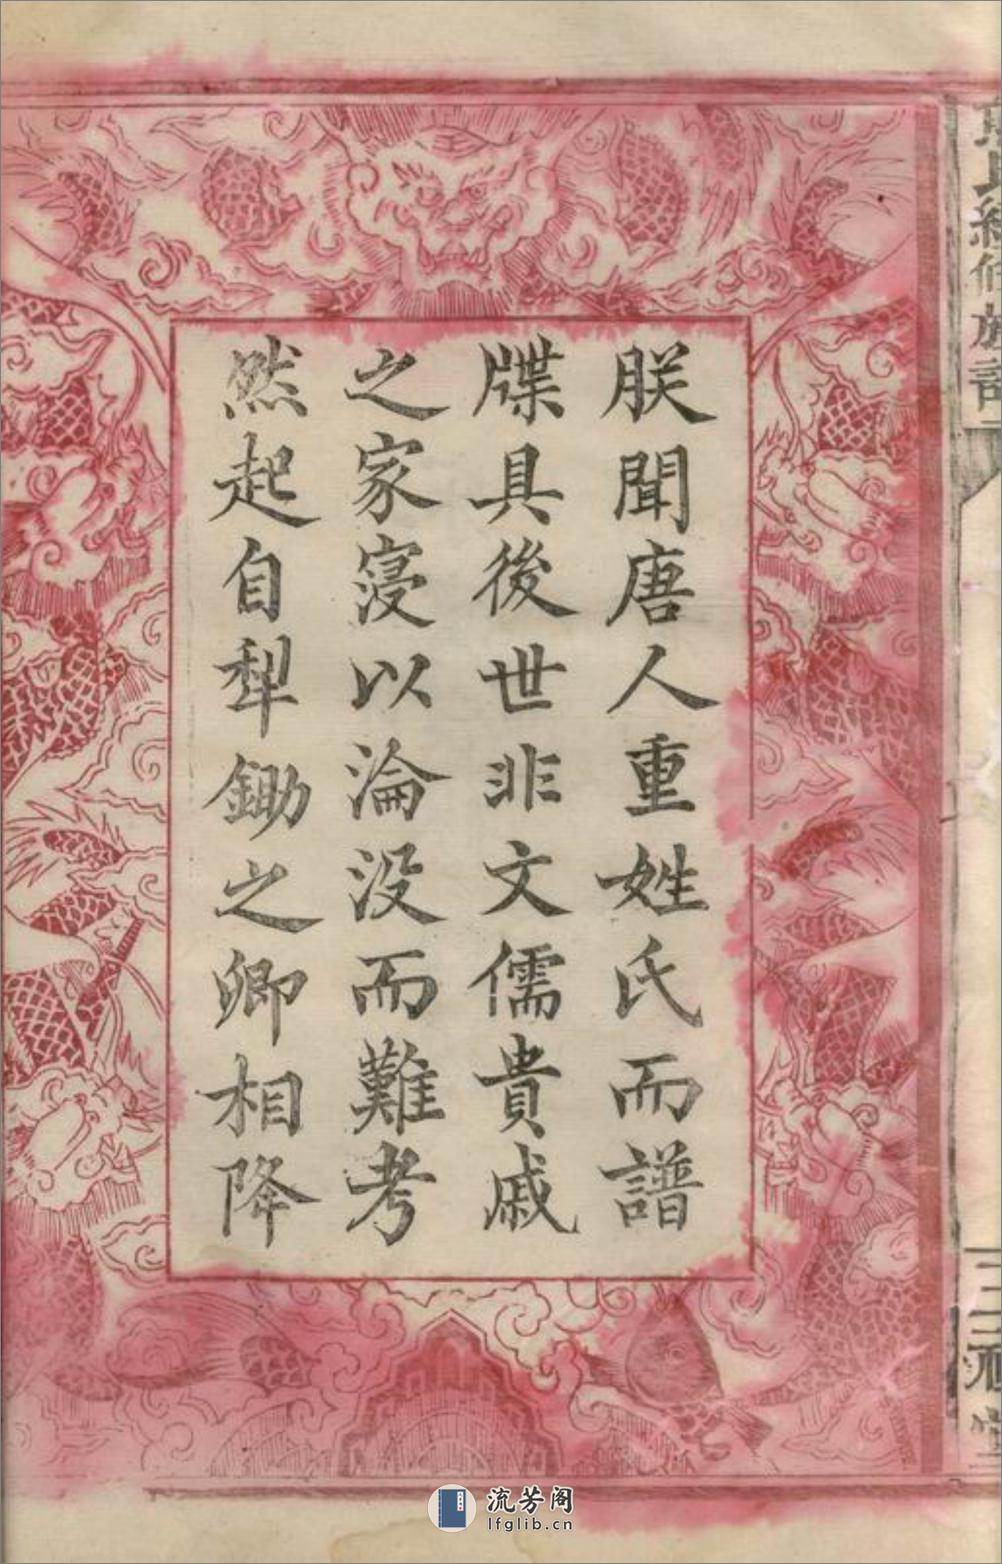 朕聞唐人重姓氏而譜
牒具後世非文儒貴戚
之家寖以淪没而難考
然起自犁鋤之卿相降
流芳阁
lfglib.cn